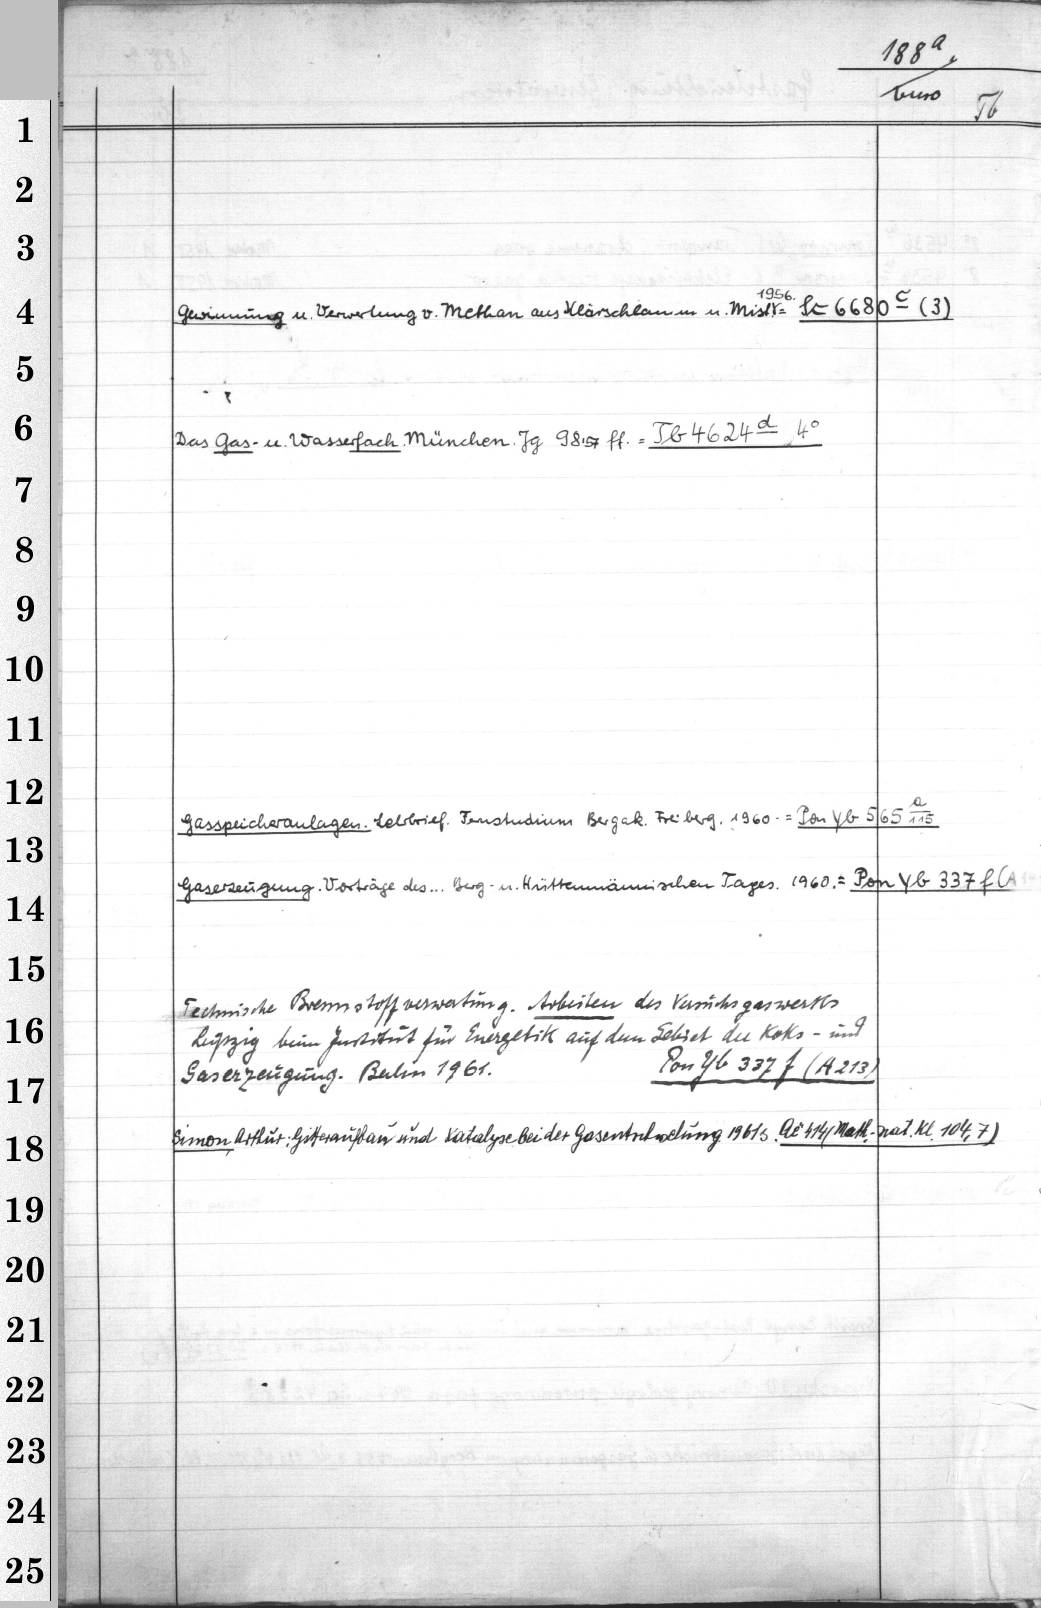 188a.
Tb
1
2
3
4
Gewinnung u. Verwertung v. Methan aus Klärschlamm u. Mist. 1956. = Sc 6680 c (3)
5
6
Das Gas- u. Wasserfach. München. Jg 98.57 ff. = Tb 4624 d 4°
7
8
9
10
11
12
Gasspeicheranlagen. Lehrbrief. Fernstudium Bergak. Freiberg. 1960. = Pon Yb 565 a/115
13
Gaserzeugung. Vorträge des... Berg- u. Hüttenmännischen Tages. 1960. = Pon Yb 337 f (A
14
15
Technische Brennstoffverwertung. Arbeiten des Versuchsgaswerks
16
Leipzig beim Institut für Energetik auf dem Gebiet der Koks- und
Gaserzeugung. Berlin 1961. Pon Yb 337 f (A 213)
17
18
Simon, Arthur: Gitteraufbau und Katalyse bei der Gasentschwefelung 1961 (Math.-nat. Kl. 104,7)
19
20
21
22
23
24
25